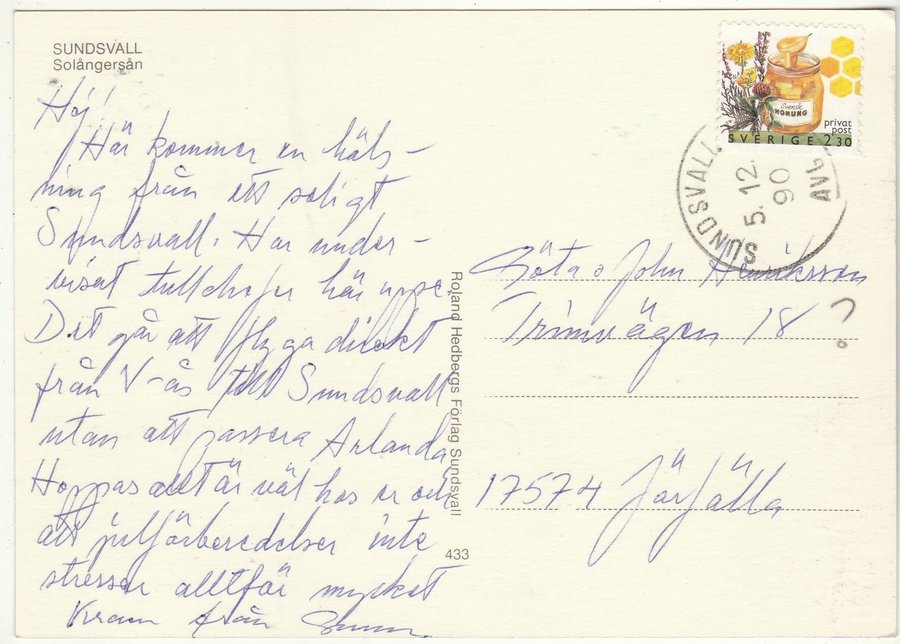 SUNDSVALL
Solångersån
Hej!
Här kommer en häls-
ning från ett soligt
Sundsvall. Har under-
visat tullchefer här uppe.
Det går att flyga direkt
från V-ås till Sundsvall
utan att passera Arlanda.
Hoppas allt är väl hos er och
att julförberedelser inte
stressar alltför mycket
Kram från
Roland Hedbergs Förlag Sundsvall
433
Svensk
HONUNG
privat
post
SVERIGE 2,30
SUNDSVALL
5.12
90
AVG
Göta o John Henriksson
Trimvägen 18
17574 Järfälla